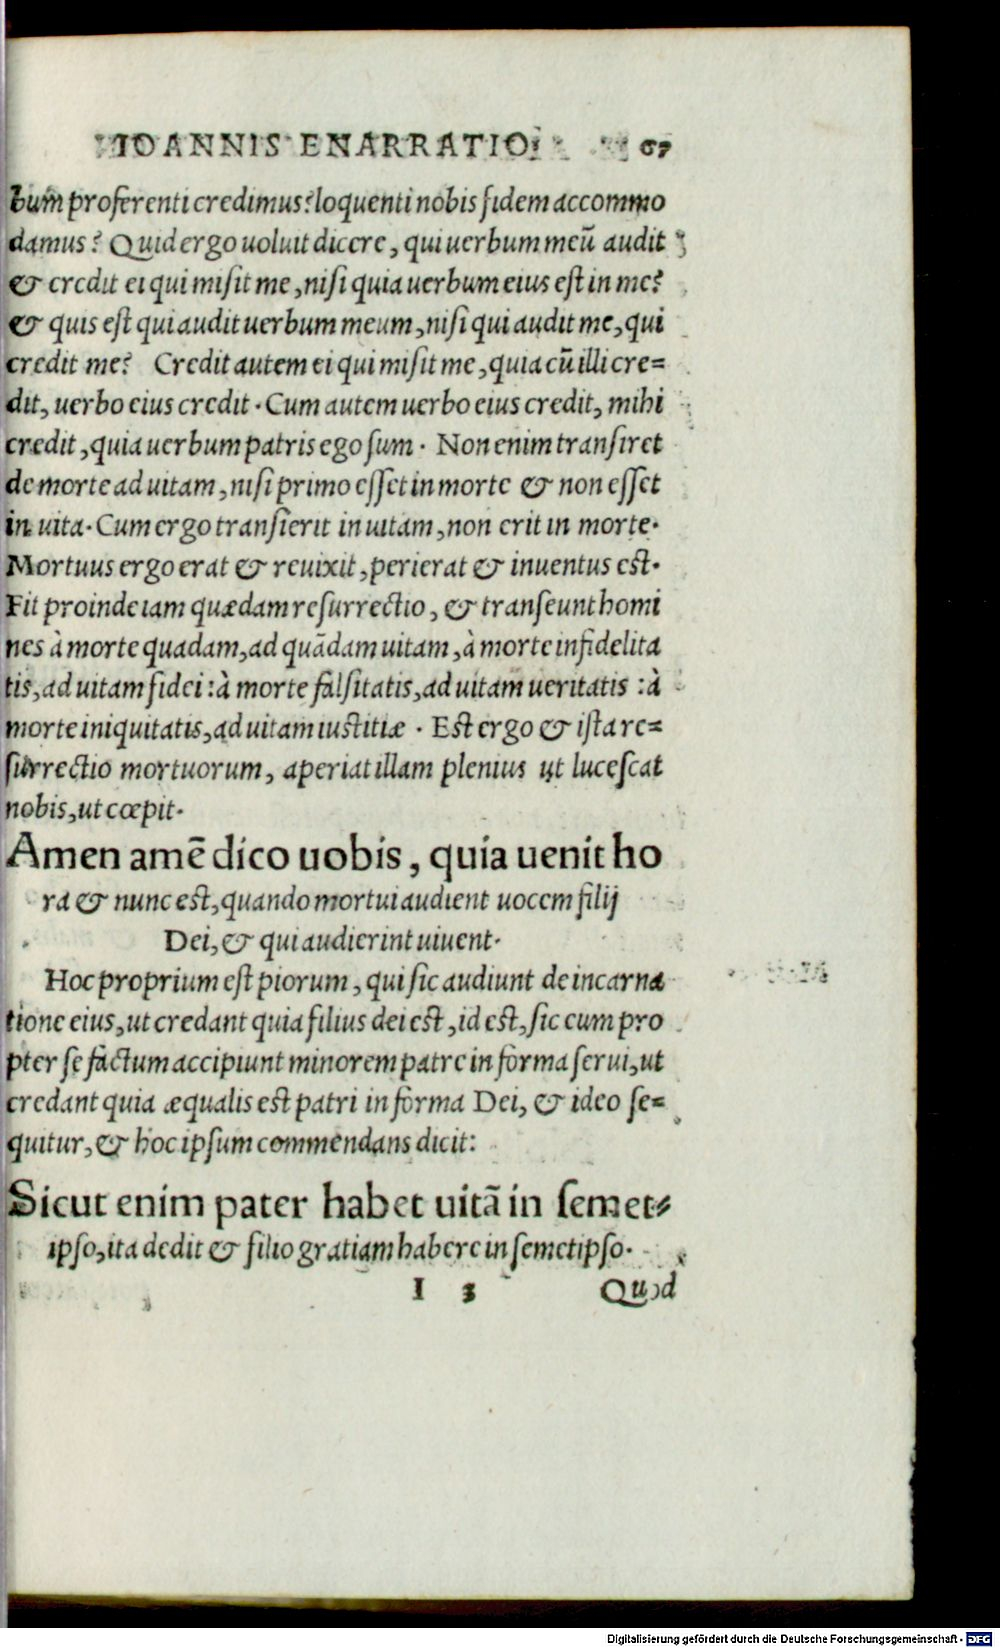 IOANNIS ENARRATIO. 67
bum proferenti credimus? loquenti nobis fidem accommo
damus? Quid ergo uoluit dicere, qui uerbum meū audit
& credit ei qui misit me, nisi quia uerbum eius est in me?
& quis est qui audit uerbum meum, nisi qui audit me, qui
credit me? Credit autem ei qui misit me, quia cū illi cre=
dit, uerbo eius credit. Cum autem uerbo eius credit, mihi
credit, quia uerbum patris ego sum. Non enim transiret
de morte ad uitam, nisi primo esset in morte & non esset
in uita. Cum ergo transierit in uitam, non erit in morte.
Mortuus ergo erat & reuixit, perierat & inuentus est.
Fit proinde iam quædam resurrectio, & transeunt homi
nes à morte quadam, ad quādam uitam, à morte infidelita
tis, ad uitam fidei: à morte falsitatis, ad uitam ueritatis: à
morte iniquitatis, ad uitam iustitiæ. Est ergo & ista re=
surrectio mortuorum, aperiat illam plenius ut lucescat
nobis, ut cœpit.
Amen amē dico uobis, quia uenit ho
ra & nunc est, quando mortui audient uocem filij
Dei, & qui audierint uiuent.
Hoc proprium est piorum, qui sic audiunt de incarna
tione eius, ut credant quia filius dei est, id est, sic eum pro
pter se factum accipiunt minorem patre in forma serui, ut
credant quia æqualis est patri in forma Dei, & ideo se=
quitur, & hoc ipsum commendans dicit:
Sicut enim pater habet uitā in semet=
ipso, ita dedit & filio gratiam habere in semetipso.
I 3 Quod
Digitalisierung gefördert durch die Deutsche Forschungsgemeinschaft - DFG